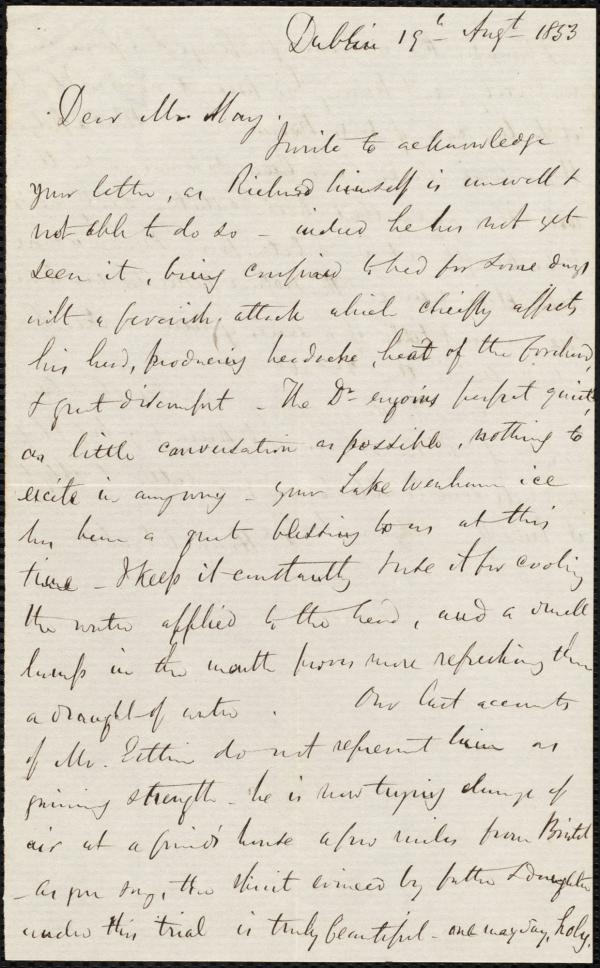 Dublin 19th Augt 1853
Dear Mr. May.
I write to acknowledge
your letter, as Richard himself is unwell &
not able to do so - indeed he has not yet
seen it, being confined to bed for some days
with a feverish attack which chiefly affects
his head, producing headache, heat of the forehead,
& great discomfort - The Dr enjoins perfect quiet,
as little conversation as possible, nothing to
excite in anyway - your Lake Wenham ice
has been a great blessing to us at this
time - I keep it constantly & use it for cooling
the water applied to the head, and a small
lump in the mouth proves more refreshing than
a draught of water. Our last accounts
of Mr. Estlin do not represent him as
gaining strength - he is now trying change of
air at a friend's house a few miles from Bristol
- as you say, the spirit evinced by father & daughter
under this trial is truly beautiful - one may say, holy.